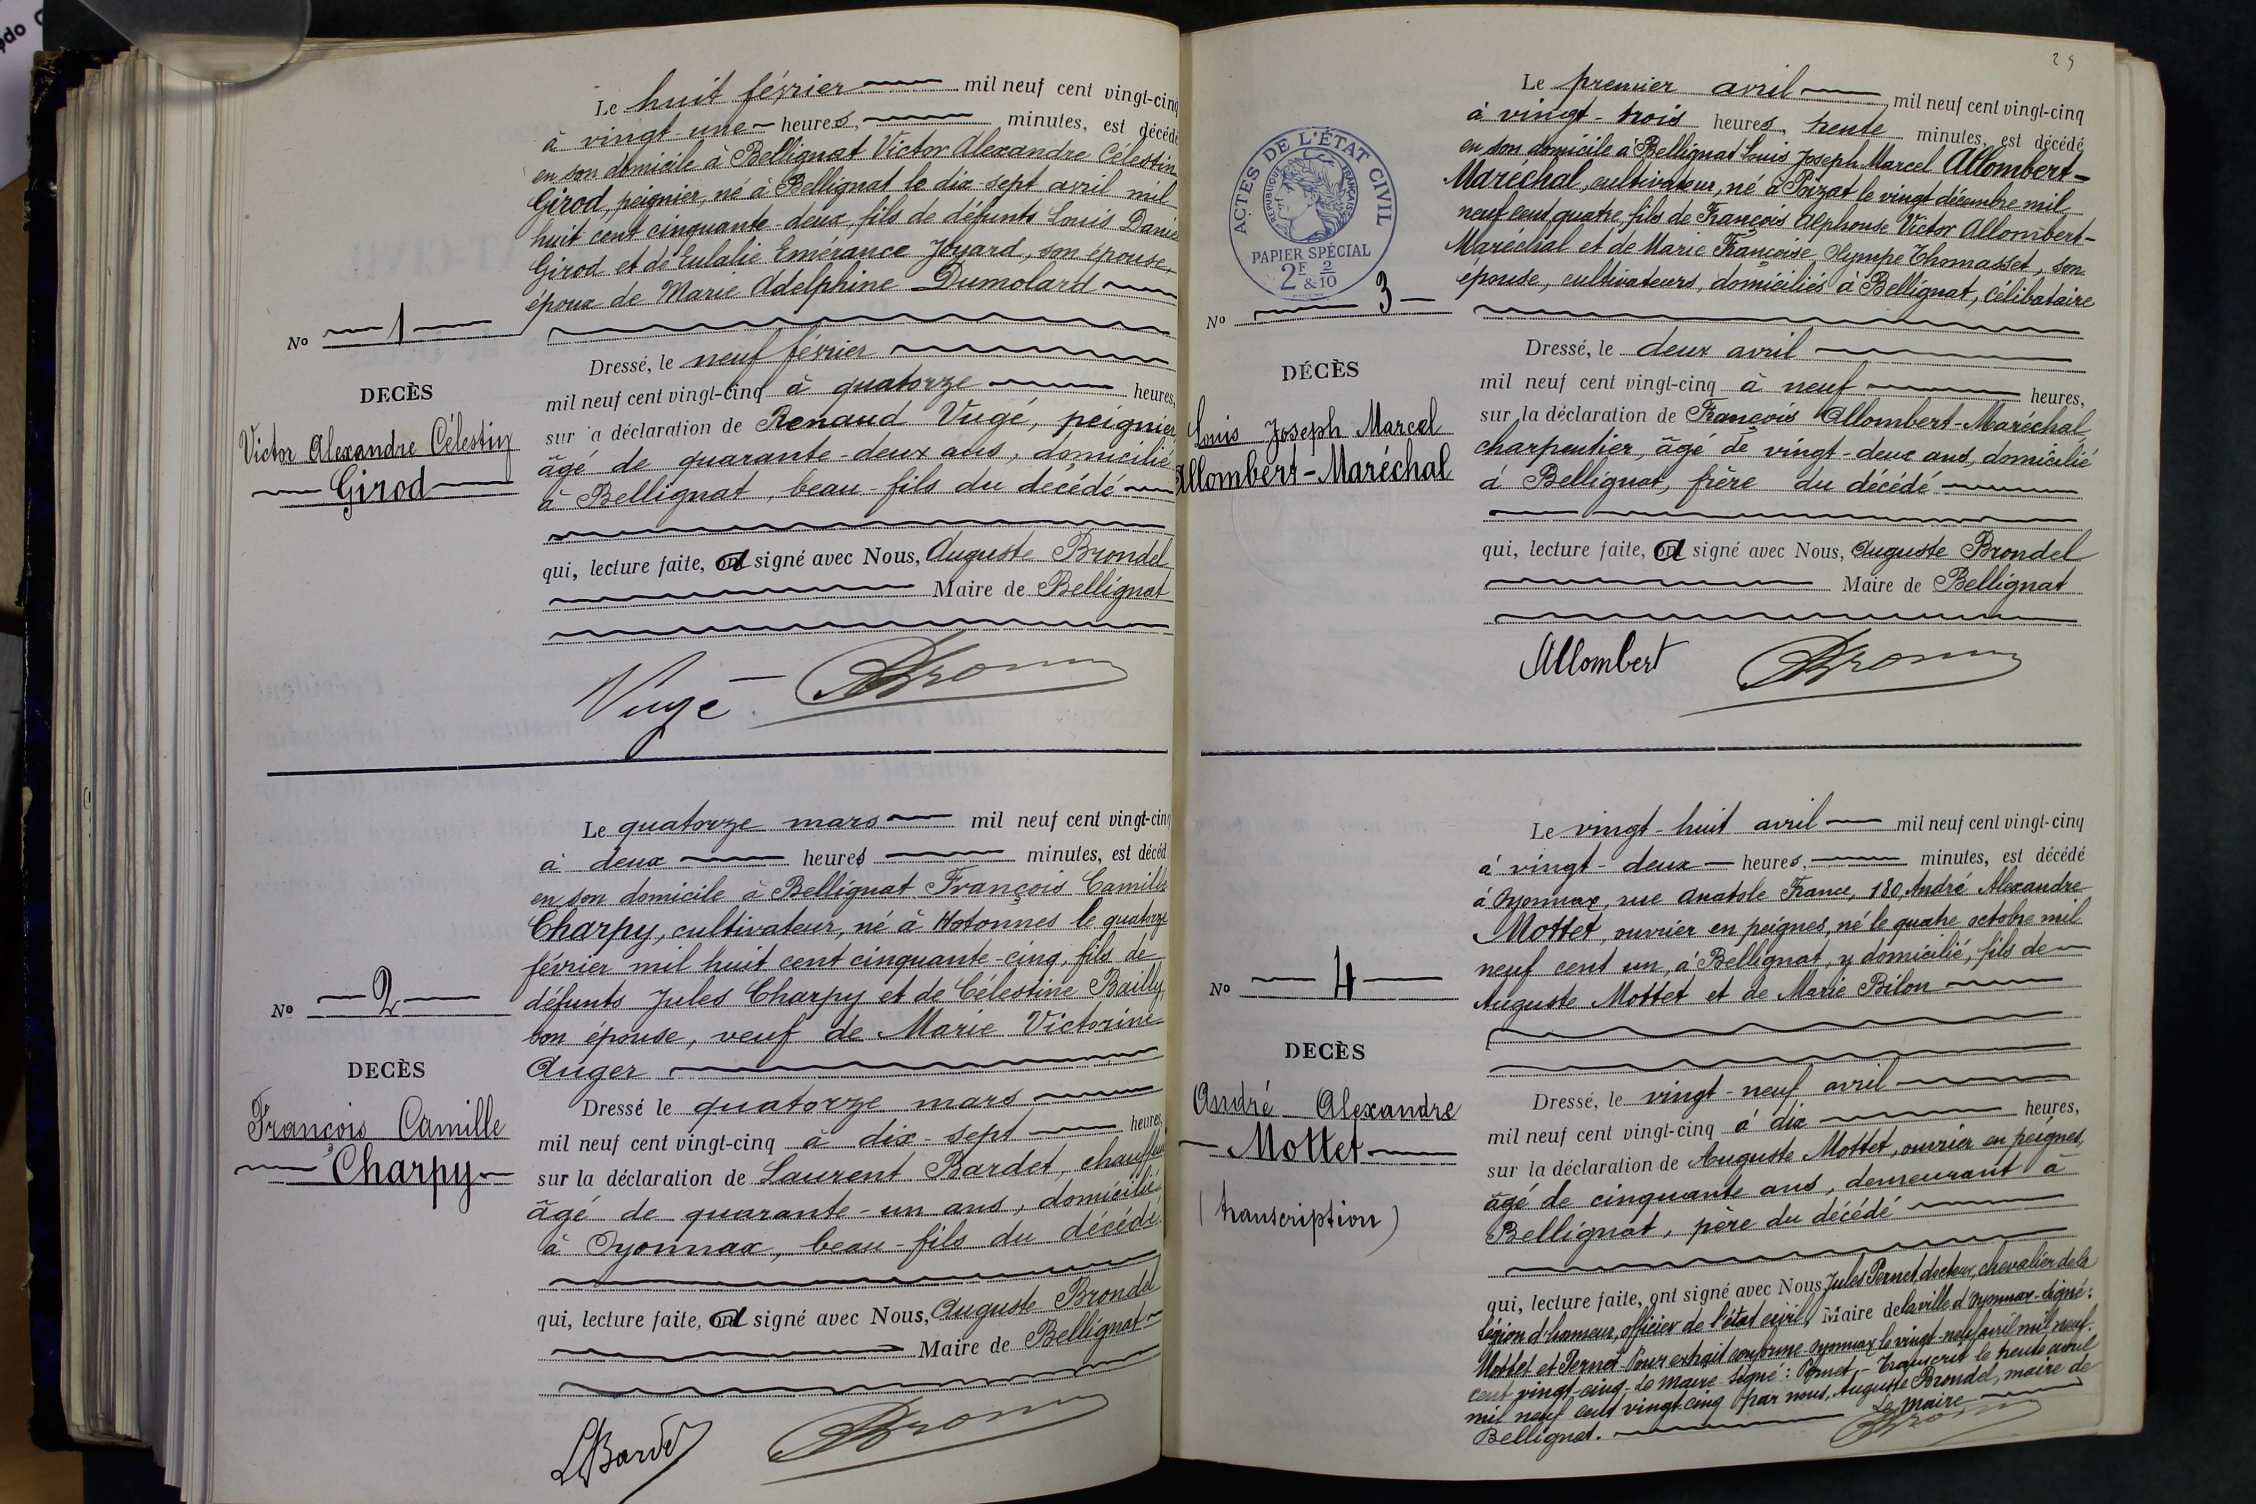 Le huit février mil neuf cent vingt-cinq
à vingt-une heures, minutes, est décédé
en son domicile à Bellignat Victor Alexandre Célestin
Girod, peignier, né à Bellignat le dix-sept avril mil
huit cent cinquante-deux, fils de défunts Louis Daniel
Girod et de Eulalie Emérance Joyard, son épouse,
époux de Marie Adelphine Dumolard
No 1
Dressé, le neuf février
mil neuf cent vingt-cinq à quatorze heures,
DECÈS
sur a déclaration de Renaud Vugé, peignier
Victor Alexandre Célestin
Girod
âgé de quarante-deux ans, domicilié
à Bellignat, beau-fils du décédé
qui, lecture faite, a signé avec Nous, Auguste Brondel
Maire de Bellignat
Vugé
Le quatorze mars mil neuf cent vingt-cinq
à deux heures minutes, est décéd
en son domicile à Bellignat François Camille
Charpy, cultivateur, né à Hotonnes le quatorze
février mil huit cent cinquante-cinq, fils de
défunts Jules Charpy et de Célestine Bailly,
son épouse, veuf de Marie Victorine
Auger
No 2
DECÈS
François Camille
Charpy
Dressé le quatorze mars
mil neuf cent vingt-cinq à dix-sept heures,
sur la déclaration de Laurent Bardet, chauffeur
âgé de quarante-un ans, domicilié
à Oyonnax, beau-fils du décédé
qui, lecture faite, a signé avec Nous, Auguste Brondel
Maire de Bellignat
LBardet
25
Le premier avril mil neuf cent vingt-cinq
à vingt-trois heures, trente minutes, est décédé
en son domicile à Bellignat Louis Joseph Marcel Allombert-
Maréchal, cultivateur, né à Poizat le vingt décembre mil
neuf cent quatre, fils de François Alphonse Victor Allombert-
Maréchal et de Marie Françoise Olympe Thomasset, son
épouse, cultivateurs, domiciliés à Bellignat, célibataire
ACTES DE L'ÉTAT CIVIL
RÉPUBLIQUE FRANÇAISE
PAPIER SPÉCIAL
2F & 2/10
No 3
DÉCÈS
Louis Joseph Marcel
Allombert-Maréchal
Dressé, le deux avril
mil neuf cent vingt-cinq à neuf heures,
sur la déclaration de François Allombert-Maréchal,
charpentier, âgé de vingt-deux ans, domicilié
à Bellignat, frère du décédé
qui, lecture faite, a signé avec Nous, Auguste Brondel
Maire de Bellignat
Allombert
Le vingt-huit avril mil neuf cent vingt-cinq
à vingt-deux heures, minutes, est décédé
à Oyonnax, rue Anatole France, 180, André Alexandre
Mottet, ouvrier en peignes, né le quatre octobre mil
neuf cent un, à Bellignat, y domicilié, fils de
Auguste Mottet et de Marie Bilon
No 4
DECÈS
André Alexandre
Mottet
(transcription)
Dressé, le vingt-neuf avril
mil neuf cent vingt-cinq à dix heures,
sur la déclaration de Auguste Mottet, ouvrier en peignes,
âgé de cinquante ans, demeurant à
Bellignat, père du décédé
qui, lecture faite, ont signé avec Nous, Jules Pernet, docteur, chevalier de la
Légion d'honneur, officier de l'état civil, Maire de la ville d'Oyonnax - signé:
Mottet et Pernet - Pour extrait conforme - Oyonnax le vingt-neuf avril mil neuf
cent vingt-cinq - Le Maire - Signé: Pernet - Transcrit le trente avril
mil neuf cent vingt-cinq par nous, Auguste Brondel, maire de
Bellignat. Le Maire